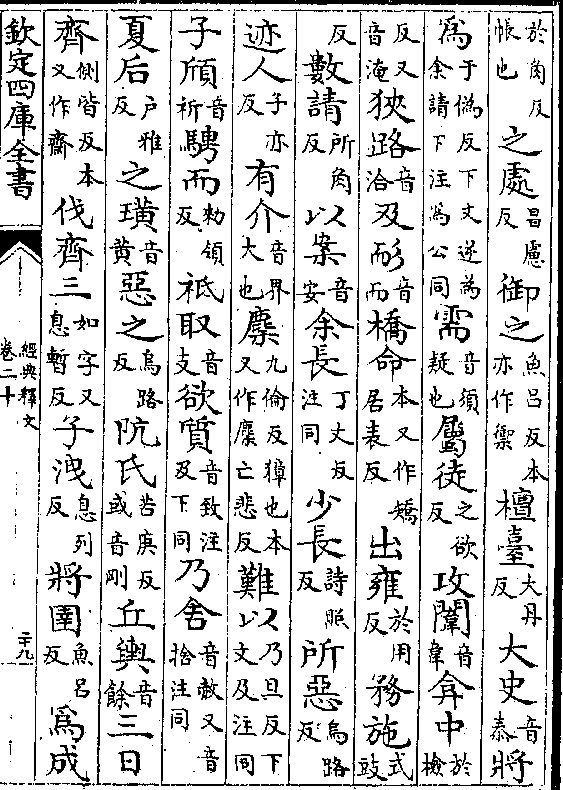 於角反帳也之處昌慮反御之魚呂反本亦作禦檀臺大丹反大史音泰將
為于偽反下文遂為余請下注為公同需音須疑也屬徒之欲反攻闈音韋弇中於檢
反又音淹狹路音洽及耏音而橋命本又作矯居表反出雍於用反務施式豉
反數請所角反以案音安余長丁丈反注同少長詩照反所惡烏路反
迹人子亦反有介音界大也麇九倫反獐也本又作麋亡悲反難以乃旦反下文及注同
子頎音祈騁而勑領反祗取音支欲質音致注及下同乃舍音赦又音捨注同
夏后户雅反之璜音黃惡之烏路反阬氏苦庚反或音剛丘輿音餘三日
齊側皆反本又作齋伐齊三如字又息暫反子洩息列反將圉魚呂反為成
欽定四庫全書
經典釋文
卷二十
二十九